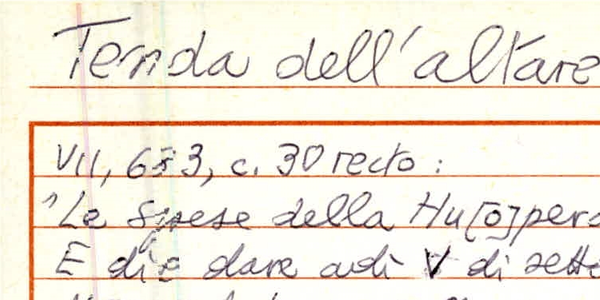 Tenda dell'altare
VII, 653, c. 30 recto :
"Le spese della
E die dare adì V di